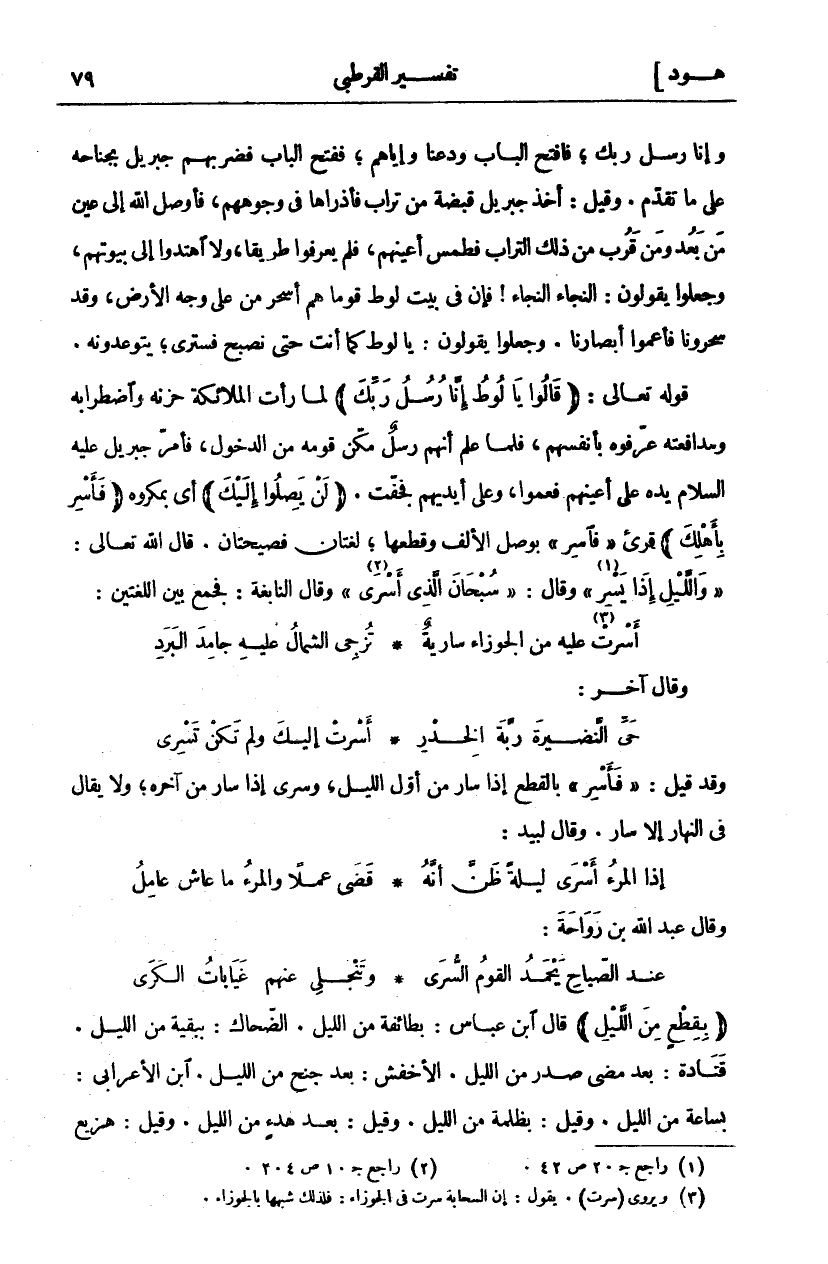 هـــود ]
تفســـير القرطبي
٧٩
و إنا رســل ربك ؛ فافتح البــاب ودعنا و إياهم ؛ ففتح الباب فضربهــم جبريل بجناحه
على ما تقدّم . وقيل : أخذ جبريل قبضة من تراب فأذراها فى وجوههم ، فأوصل الله إلى عين
مَن بَعُد ومَن قَرُب من ذلك التراب فطمس أعينهم ، فلم يعرفوا طريقا ، ولا آهتدوا إلى بيوتهم ،
وجعلوا يقولون : النجاء النجاء ! فإن فى بيت لوط قوما هم أسحر من على وجه الأرض ، وقد
سحرونا فأعموا أبصارنا . وجعلوا يقولون : يا لوط كما أنت حتى نصبح فسترى ؛ يتوعدونه .
قوله تعــالى : ﴿ قَالُوا يَا لُوطُ إِنَّا رُسُــلُ رَبِّكَ ﴾ لمــا رأت الملائكة حزنه وآضطرابه
ومدافعته عرّفوه بأنفسهم ، فلمــا علم أنهم رسلٌ مكّن قومه من الدخول ، فأمرّ جبريل عليه
السلام يده على أعينهم فعموا ، وعلى أيديهم فجفّت . ﴿ لَنْ يَصِلُوا إِلَيْكَ ﴾ أى بمكروه ﴿ فَأَسْرِ
بِأَهْلِكَ ﴾ قرئ « فآسرِ » بوصل الألف وقطعها ؛ لغتان فصيحتان . قال الله تعــالى :
« وَاللَّيْلِ إِذَا يَسْرِ (١) » وقال : « سُبْحَانَ الَّذِى أَسْرَى (٢) » وقال النابغة : فجمع بين اللغتين :
أَسْرَتْ (٣) عليه من الجوزاء ساريةٌ * تُزجِى الشمالُ عليــهِ جامِدَ البَرَدِ
وقال آخــر :
حَىِّ النَّضِــيرَةَ ربَّةَ الخِــدْرِ * أَسْرتْ إليــكَ ولم تَكنْ تَسْرِى
وقد قيل : « فَأَسْرِ » بالقطع إذا سار من أوّل الليــل ، وسرى إذا سار من آخره ؛ ولا يقال
فى النهار إلا سار . وقال لبيد :
إذا المرءُ أَسْرَى ليــلةً ظَنَّ أنَّهُ * قَضَى عمــلًا والمرءُ ما عاش عامِلُ
وقال عبد الله بن رَوَاحَةَ :
عنــد الصّباحِ يَحْمَــدُ القومُ السُّرَى * وتَنْجَــلِي عنهم غَيَاباتُ الــكَرَى
﴿ بِقِطْعٍ مِنَ اللَّيْلِ ﴾ قال آبن عبــاس : بطائفة من الليل . الضّحاك : ببقية من الليــل .
قَتَــادة : بعد مضى صــدر من الليل . الأخفش : بعد جنح من الليــل . آبن الأعرابى :
بساعة من الليل . وقيل : بظلمة من الليل . وقيل : بعــد هدء من الليل . وقيل : هــزيع
(١) راجع جـ ٢٠ ص ٤٢ .
(٢) راجع جـ ١٠ ص ٢٠٤ .
(٣) ويروى (سرت) . يقول : إن السحابة سرت فى الجوزاء : فلذلك شبهها بالجوزاء .